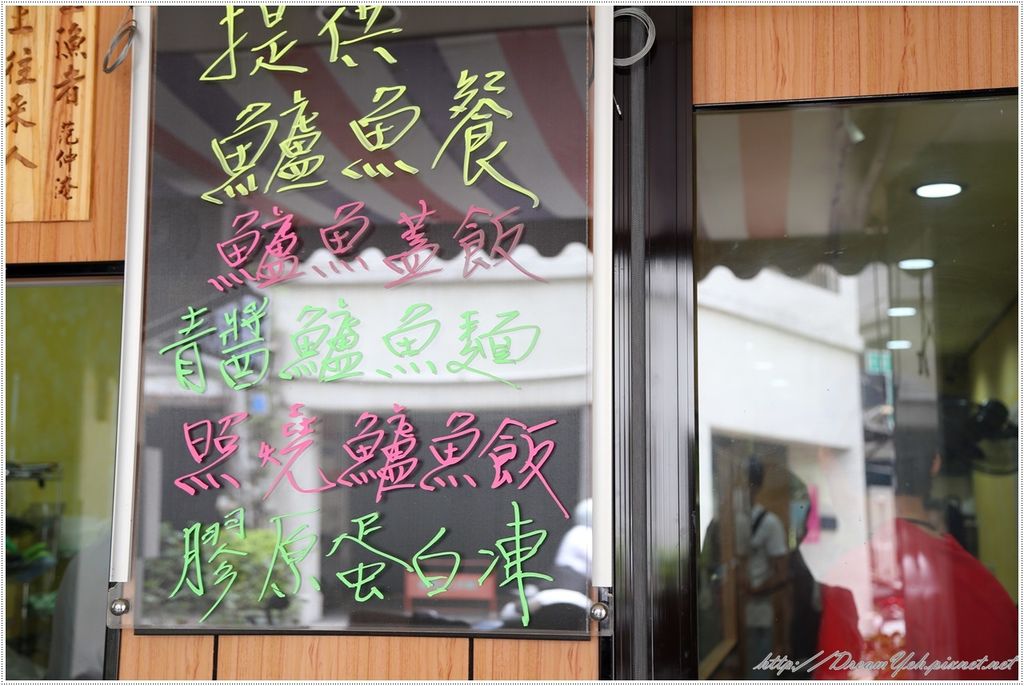 提供
鱸魚餐
鱸魚蓋飯
青醬鱸魚麵
照燒鱸魚飯
膠原蛋白凍
漁者 范仲淹
上往來人
http://DreamYeh.pixnet.net